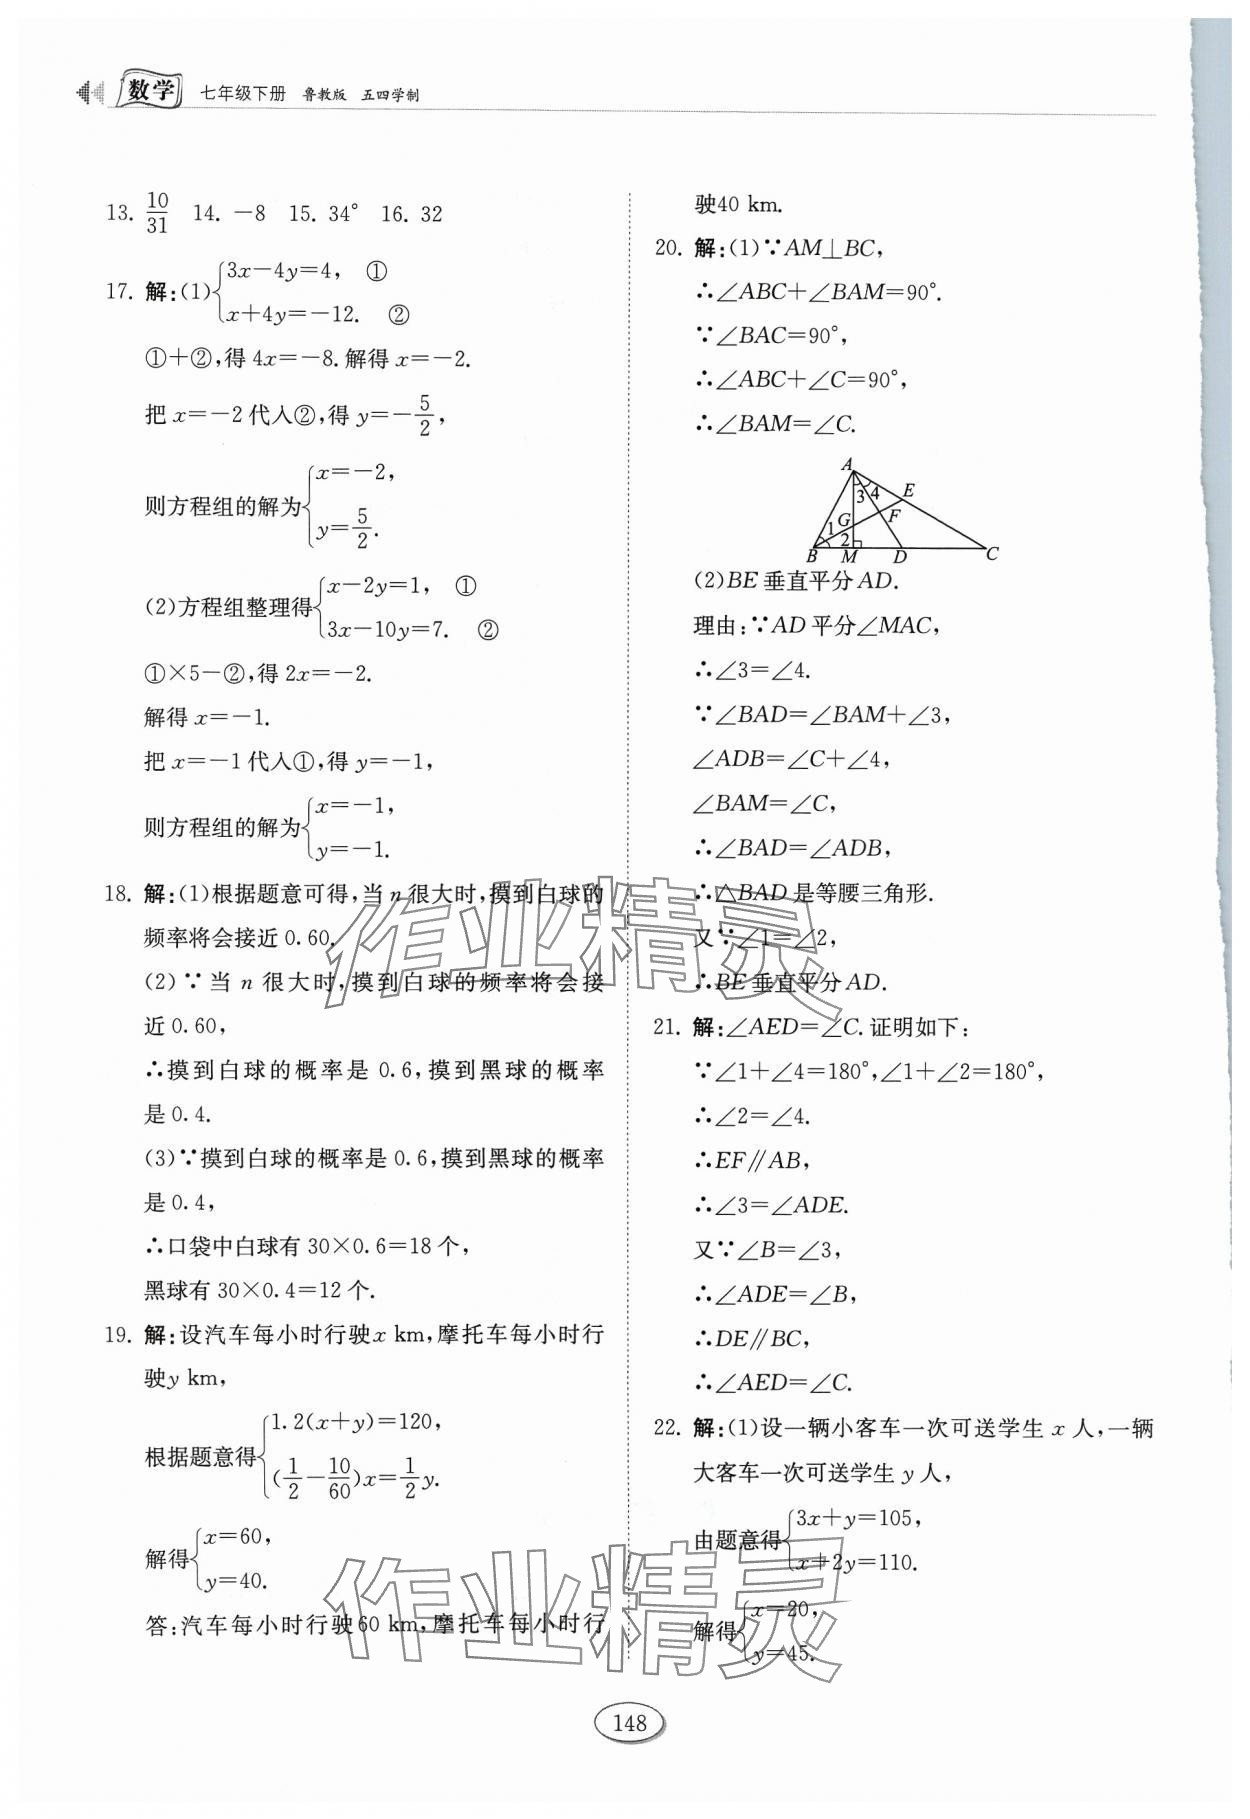 数学 七年级下册 鲁教版 五四学制
13. 10/31 14. -8 15. 34° 16. 32
17. 解:(1){3x-4y=4, ①
x+4y=-12. ②
①+②,得 4x=-8.解得 x=-2.
把 x=-2 代入②,得 y=-5/2,
则方程组的解为{x=-2,
y=5/2.
(2)方程组整理得{x-2y=1, ①
3x-10y=7. ②
①×5-②,得 2x=-2.
解得 x=-1.
把 x=-1 代入①,得 y=-1,
则方程组的解为{x=-1,
y=-1.
18. 解:(1)根据题意可得,当 n 很大时,摸到白球的
频率将会接近 0.60.
(2)∵当 n 很大时,摸到白球的频率将会接
近 0.60,
∴摸到白球的概率是 0.6,摸到黑球的概率
是 0.4.
(3)∵摸到白球的概率是 0.6,摸到黑球的概率
是 0.4,
∴口袋中白球有 30×0.6=18 个,
黑球有 30×0.4=12 个.
19. 解:设汽车每小时行驶x km,摩托车每小时行
驶y km,
根据题意得{1.2(x+y)=120,
(1/2-10/60)x=1/2y.
解得{x=60,
y=40.
答:汽车每小时行驶60 km,摩托车每小时行
驶40 km.
20. 解:(1)∵AM⊥BC,
∴∠ABC+∠BAM=90°.
∵∠BAC=90°,
∴∠ABC+∠C=90°,
∴∠BAM=∠C.
A
3 4 E
G F
1
2
B M D C
(2)BE 垂直平分 AD.
理由:∵AD 平分∠MAC,
∴∠3=∠4.
∵∠BAD=∠BAM+∠3,
∠ADB=∠C+∠4,
∠BAM=∠C,
∴∠BAD=∠ADB,
∴△BAD 是等腰三角形.
又∵∠1=∠2,
∴BE 垂直平分 AD.
21. 解:∠AED=∠C.证明如下:
∵∠1+∠4=180°,∠1+∠2=180°,
∴∠2=∠4.
∴EF∥AB,
∴∠3=∠ADE.
又∵∠B=∠3,
∴∠ADE=∠B,
∴DE∥BC,
∴∠AED=∠C.
22. 解:(1)设一辆小客车一次可送学生 x 人,一辆
大客车一次可送学生 y 人,
由题意得{3x+y=105,
x+2y=110.
解得{x=20,
y=45.
作业精灵
作业精灵
148